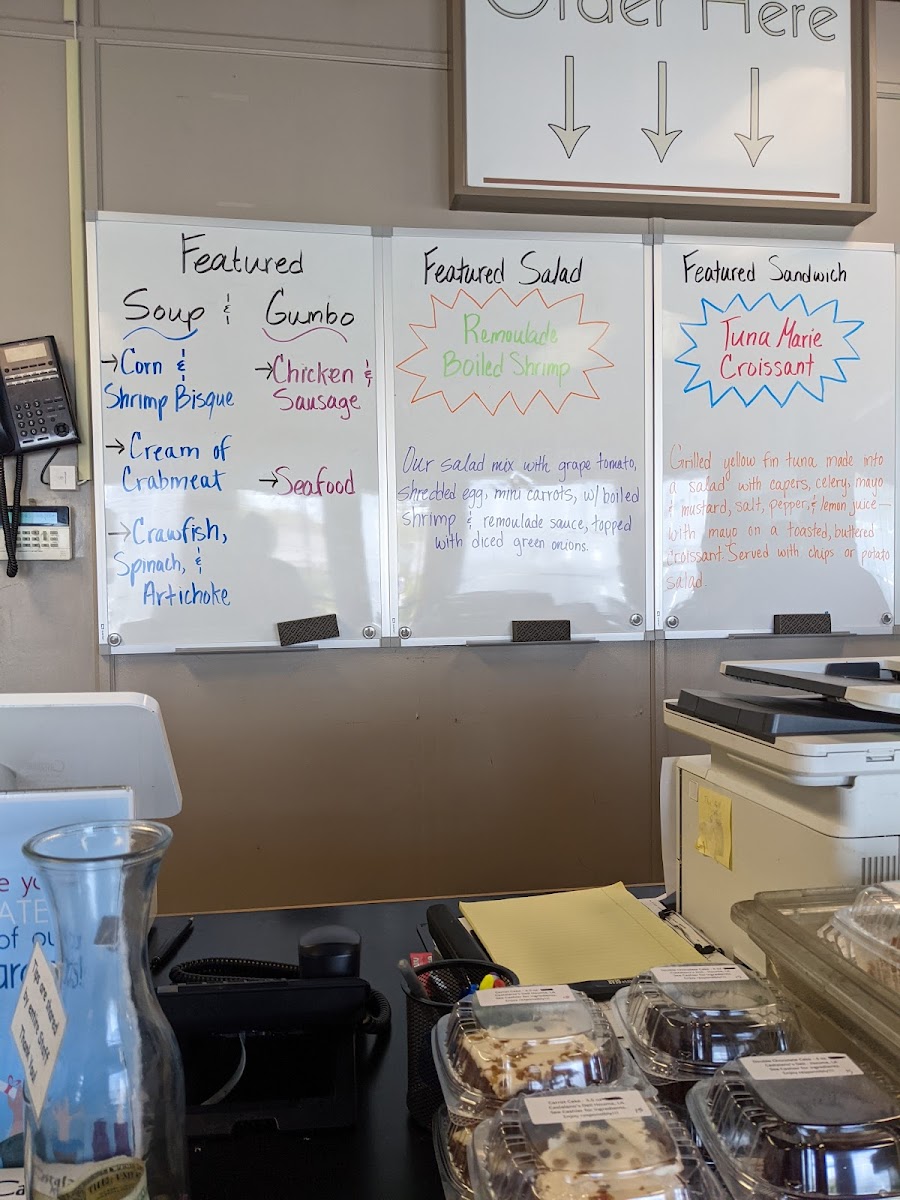 Order Here
Featured
Soup &
Gumbo
→Corn &
Shrimp Bisque
→Cream of
Crabmeat
→Crawfish,
Spinach, &
Artichoke
→Chicken &
Sausage
→Seafood
Featured Salad
Remoulade
Boiled Shrimp
Our salad mix with grape tomato,
shredded egg, mini carrots, w/ boiled
shrimp & remoulade sauce, topped
with diced green onions.
Featured Sandwich
Tuna Marie
Croissant
Grilled yellow fin tuna made into
a salad with capers, celery, mayo
& mustard, salt, pepper, & lemon juice—
with mayo on a toasted, buttered
croissant. Served with chips or potato
salad.
Tips are Shared
by entire Staff
Thank You!
Carrot Cake